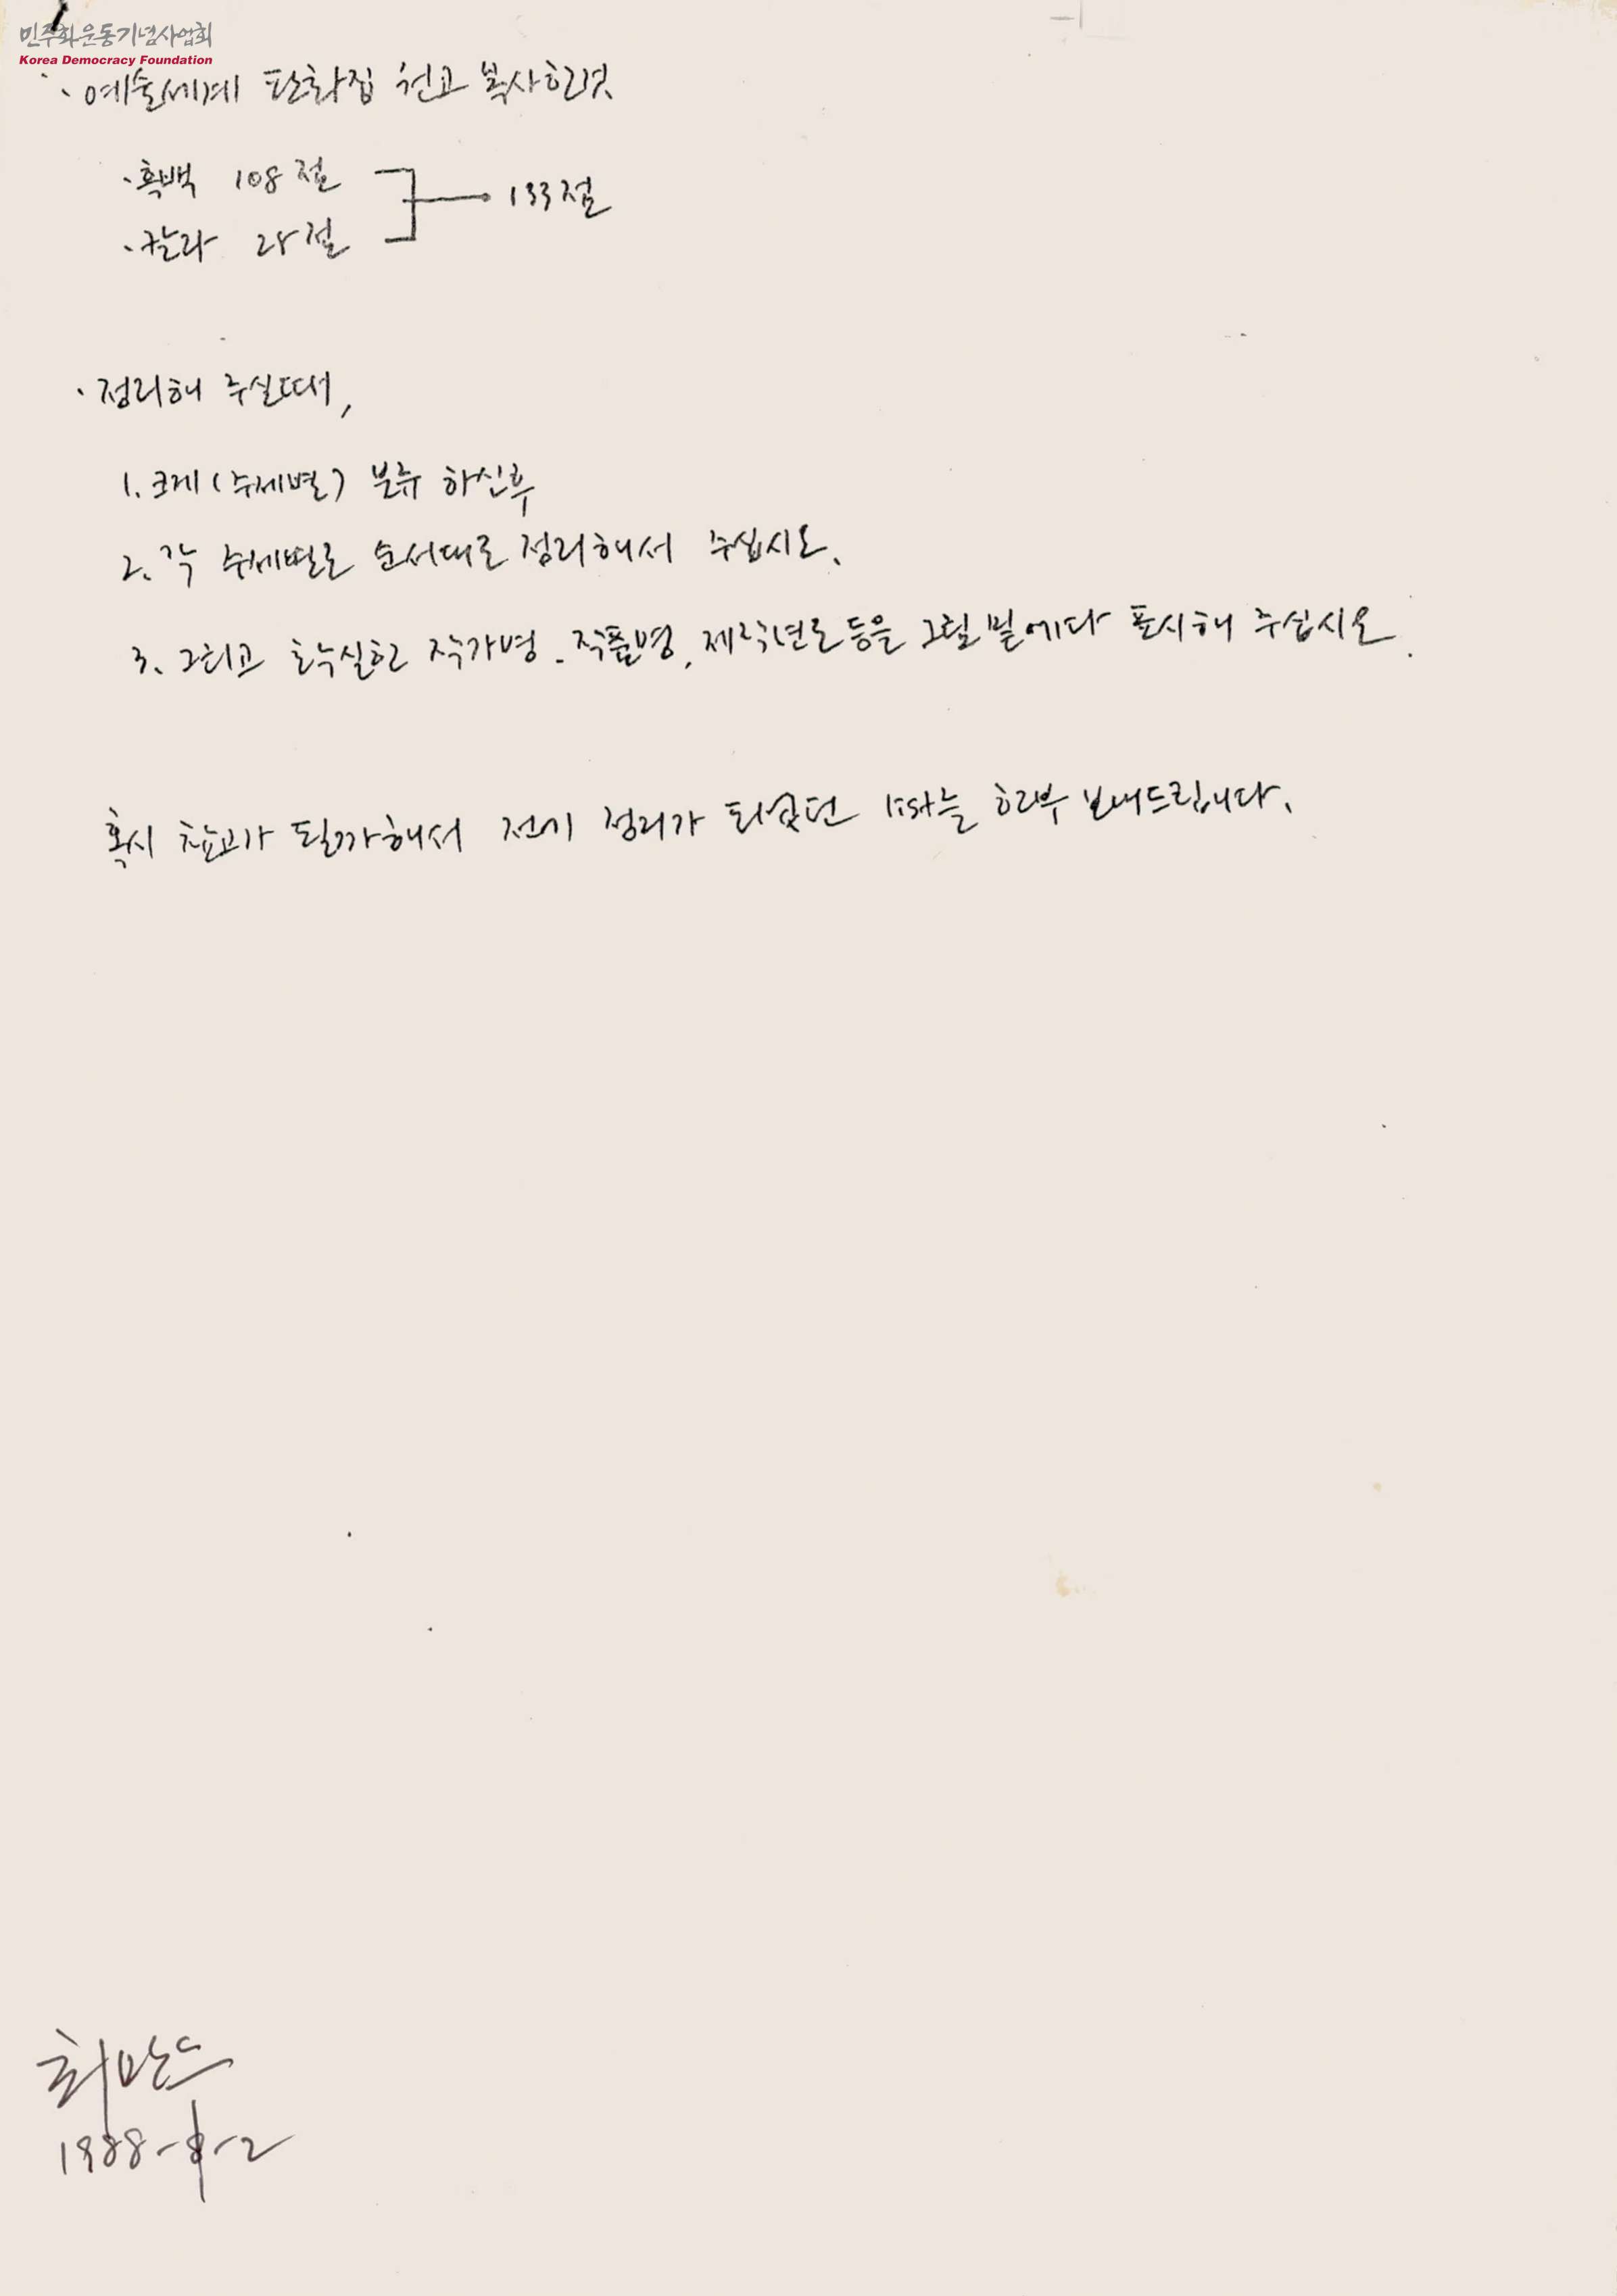 민주화운동기념사업회
Korea Democracy Foundation
· 예술세계 판화집 원고 복사한것
· 흑백 108점
133점
· 칼라 25점
· 정리해 주실때,
1. 크게 (주제별) 분류 하신후
2. 각 주제별로 순서대로 정리해서 주십시오.
3. 그리고 확실한 작가명. 작품명, 제작년도등을 그림 밑에다 표시해 주십시오.
혹시 참고가 될까해서 전에 정리가 되었던 list는 한부 보내드립니다.
1988-8-2